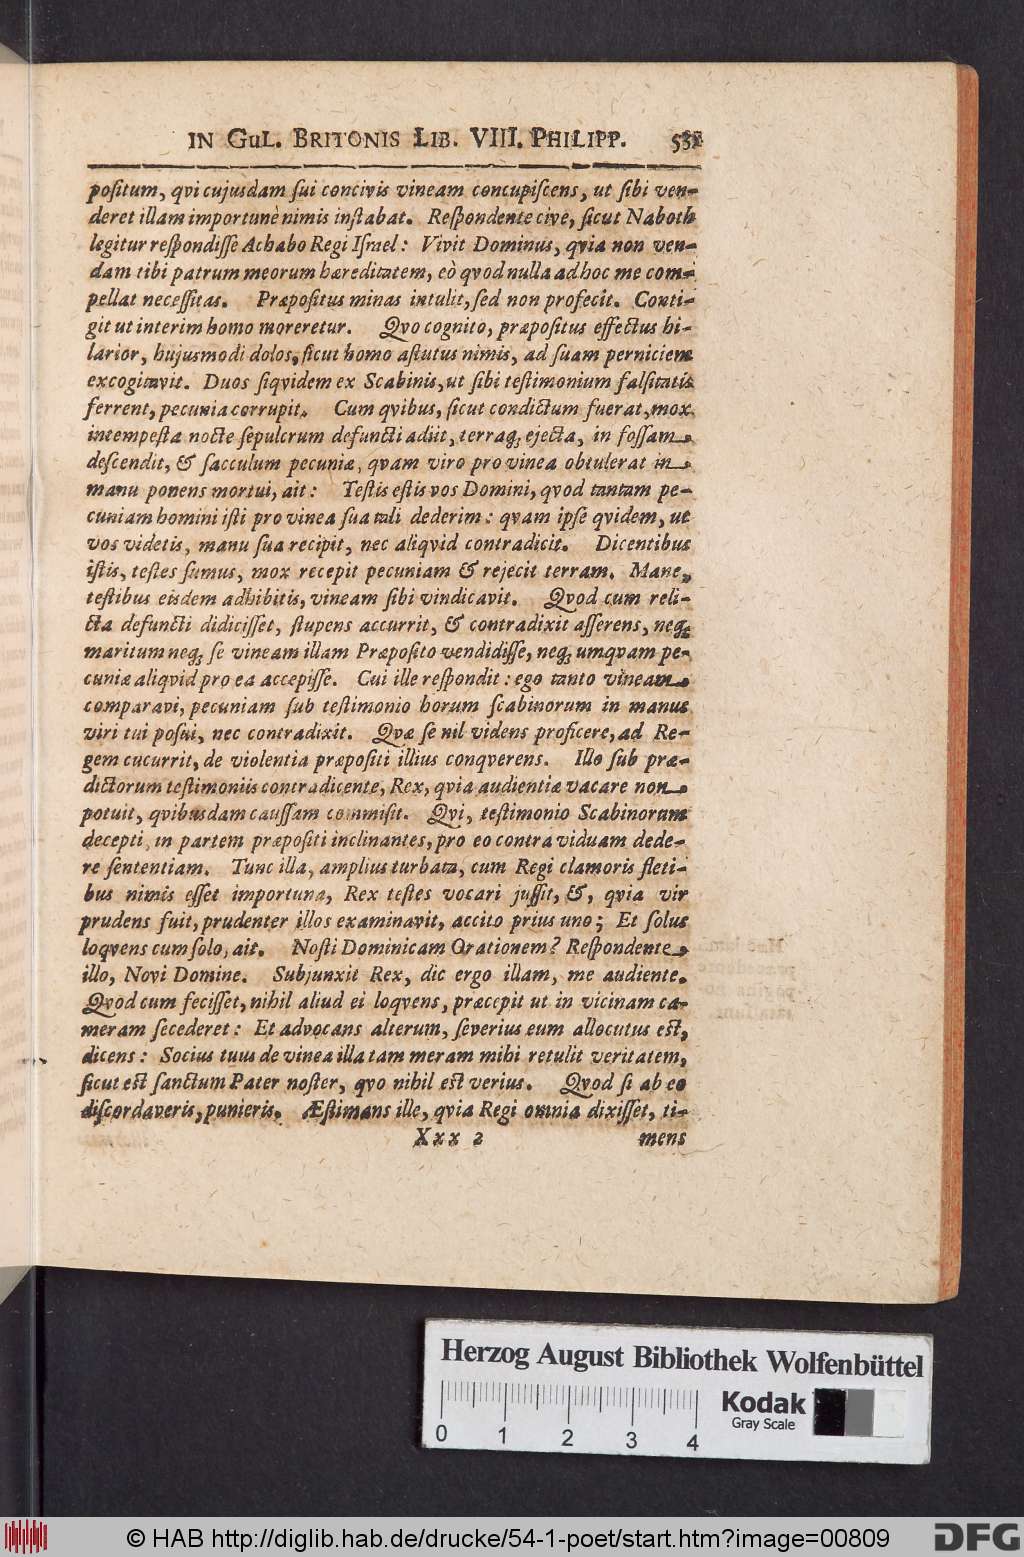 IN GuL. BRITONIS LIB. VIII. PHILIPP.
poſitum, qvi cujusdam ſui concivis vineam concupiſcens, ut ſibi ven-
deret illam importunè nimis inſtabat. Reſpondente cive, ſicut Naboth
legitur reſpondiſſe Achabo Regi Iſrael: Vivit Dominus, qvia non ven-
dam tibi patrum meorum hæreditatem, eò qvod nulla ad hoc me com-
pellat neceſſitas. Præpoſitus minas intulit, ſed non profecit. Conti-
git ut interim homo moreretur. Qvo cognito, præpoſitus effectus hi-
larior, hujusmodi dolos, ſicut homo aſtutus nimis, ad ſuam perniciem
excogitavit. Duos ſiqvidem ex Scabinis, ut ſibi teſtimonium falſitatis
ferrent, pecunia corrupit. Cum qvibus, ſicut condictum fuerat, mox
intempeſta nocte ſepulcrum defuncti adiit, terraq; ejecta, in foſſam
deſcendit, & ſacculum pecuniæ, qvam viro pro vinea obtulerat in
manu ponens mortui, ait: Teſtis eſtis vos Domini, qvod tantam pe-
cuniam homini iſti pro vinea ſua tali dederim: qvam ipſe qvidem, ut
vos videtis, manu ſua recipit, nec aliqvid contradicit. Dicentibus
iſtis, teſtes ſumus, mox recepit pecuniam & rejecit terram. Mane,
teſtibus eisdem adhibitis, vineam ſibi vindicavit. Qvod cum reli-
cta defuncti didiciſſet, ſtupens accurrit, & contradixit aſſerens, neq;
maritum neq; ſe vineam illam Præpoſito vendidiſſe, neq; umqvam pe-
cuniæ aliqvid pro ea accepiſſe. Cui ille reſpondit: ego tanto vineam
comparavi, pecuniam ſub teſtimonio horum ſcabinorum in manus
viri tui poſui, nec contradixit. Qvæ ſe nil videns proficere, ad Re-
gem cucurrit, de violentia præpoſiti illius conqverens. Illo ſub præ-
dictorum teſtimoniis contradicente, Rex, qvia audientiæ vacare non
potuit, qvibusdam cauſſam commiſit. Qvi, teſtimonio Scabinorum
decepti, in partem præpoſiti inclinantes, pro eo contra viduam dede-
re ſententiam. Tunc illa, amplius turbata, cum Regi clamoris fleti-
bus nimis eſſet importuna, Rex teſtes vocari juſſit, &, qvia vir
prudens fuit, prudenter illos examinavit, accito prius uno; Et ſolus
loqvens cum ſolo, ait. Noſti Dominicam Orationem? Reſpondente
illo, Novi Domine. Subjunxit Rex, dic ergo illam, me audiente.
Qvod cum feciſſet, nihil aliud ei loqvens, præcepit ut in vicinam ca-
meram ſecederet: Et advocans alterum, ſeverius eum allocutus eſt,
dicens: Socius tuus de vinea illa tam meram mihi retulit veritatem,
ſicut eſt ſanctum Pater noſter, qvo nihil eſt verius. Qvod ſi ab eo
diſcordaveris, punieris. Æſtimans ille, qvia Regi omnia dixiſſet, ti-
Xxx 2 mens
Herzog August Bibliothek Wolfenbüttel
Kodak
Gray Scale
0 1 2 3 4
© HAB http://diglib.hab.de/drucke/54-1-poet/start.htm?image=00809
DFG